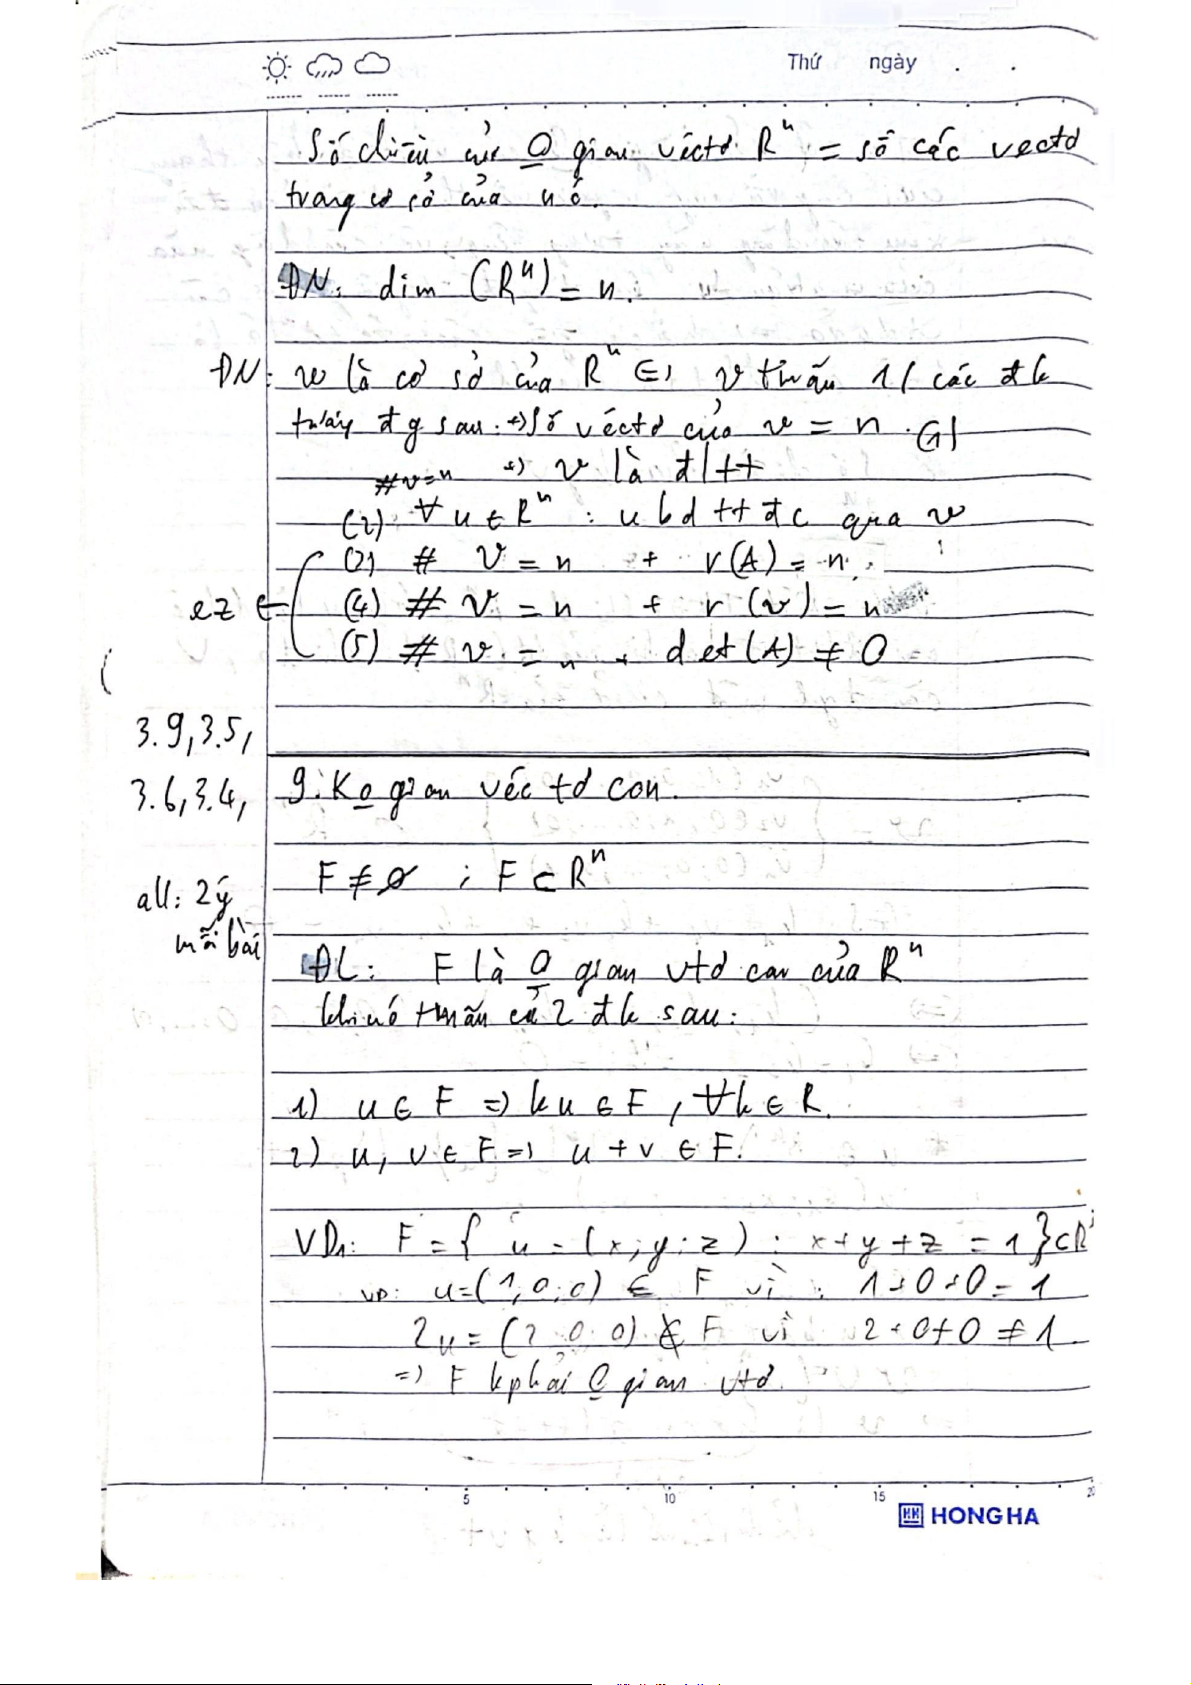 Thứ ngày . .
Số chiều của O gian véctơ Rⁿ = số các vectơ
trong cơ sở của nó.
ĐN: dim (Rⁿ) = n.
ĐN: v là cơ sở của Rⁿ (=) v thmãn 1/ các đk
đg sau: +) Số véctơ của v = n
#v=n +) v là đltt
(2) ∀ u ∈ Rⁿ : u bd tt đc qua v
(3) # v = n + r(A) = n.
ez ← (4) # v = n + r (v) = n
(5) # v = n + det(A) ≠ 0
(
3.9, 3.5,
3.6, 3.4,
all: 2 ý
mỗi bài
9. Ko gian véc tơ con.
F ≠ ∅ ; F ⊂ Rⁿ
ĐL: F là O gian vtơ con của Rⁿ
khi nó thmãn cả 2 đk sau:
1) u ∈ F => ku ∈ F, ∀k ∈ R.
2) u, v ∈ F => u + v ∈ F.
VD1: F = { u = (x; y; z) : x + y + z = 1 } ⊂ R³
VD: u = (1, 0; 0) ∈ F vì : 1 + 0 + 0 = 1
2u = (2 0 0) ∉ F vì 2 + 0 + 0 ≠ 1
=> F k phải O gian vtơ.
5 10 15 20
HONG HA